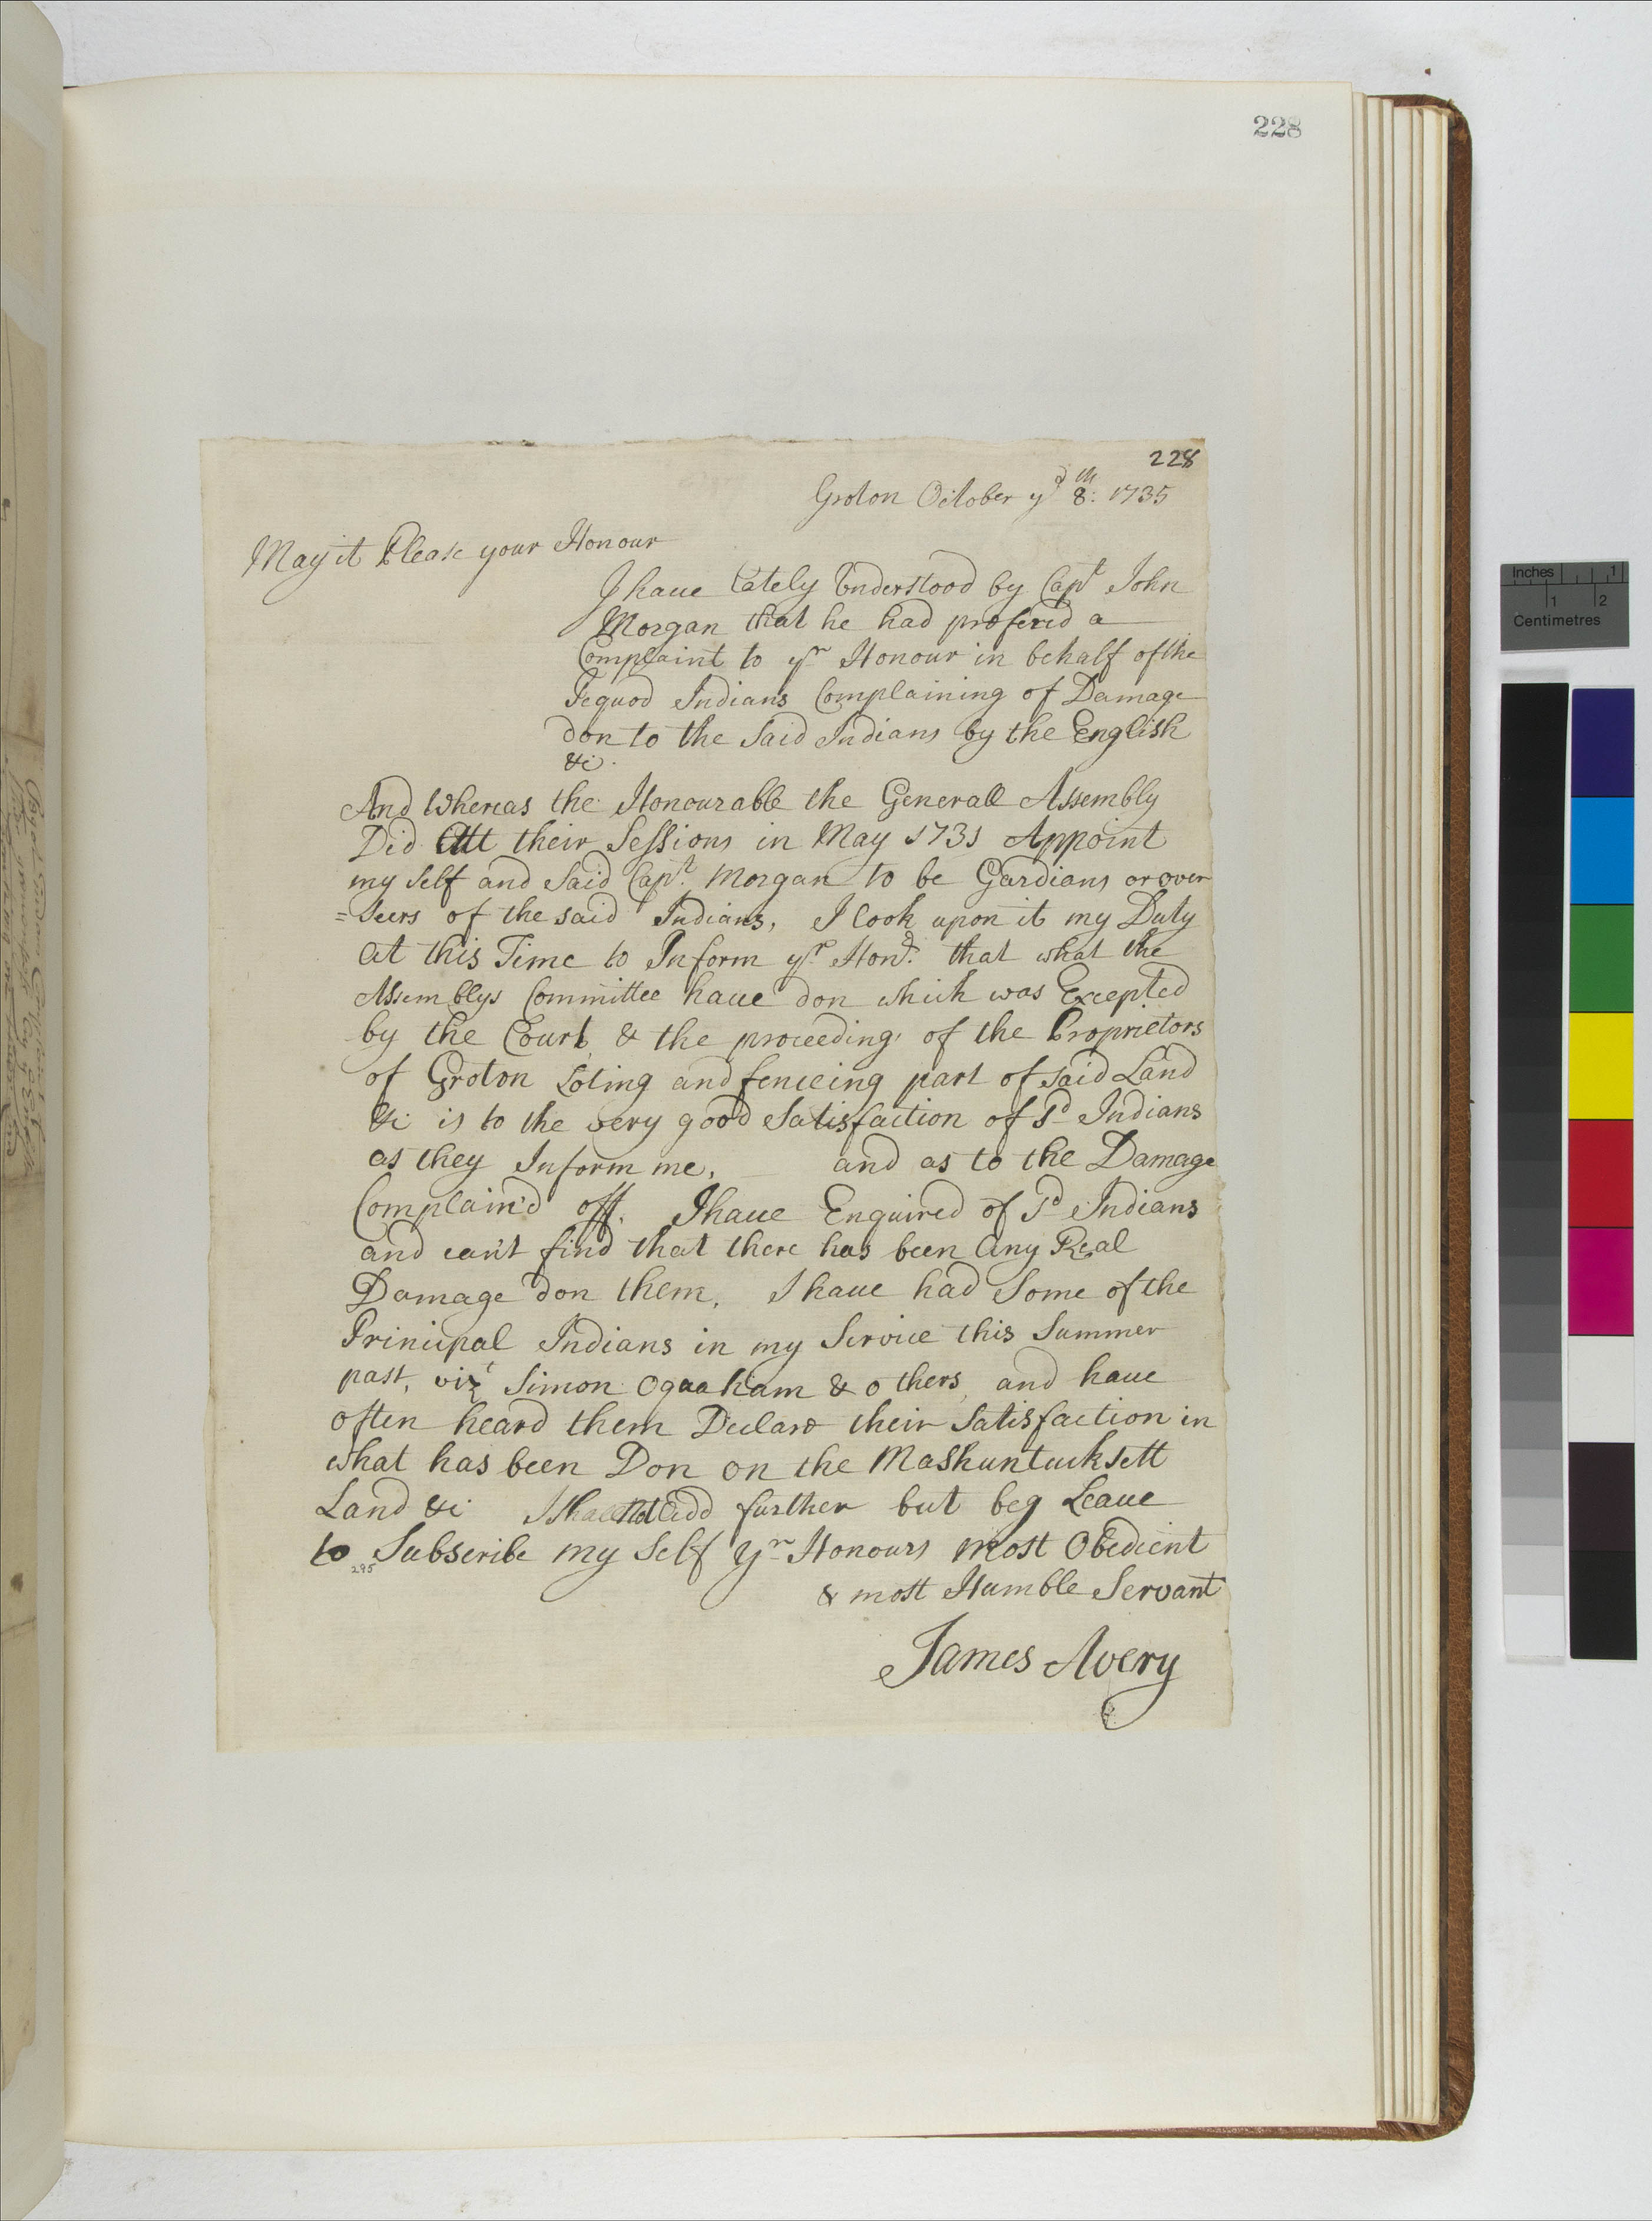 228
228
Groton October ye 8th: 1735
May it Please your Honour
I haue Lately Understood by Capt John
Morgan that he had profered a
Complaint to yr Honour in behalf of the
Pequod Indians Complaining of Damage
don to the Said Indians by the English
&c.
And Whereas the Honourable the Generall Assembly
Did Att their Sessions in May 1731 Appoint
my Self and Said Capt. Morgan to be Gardians or over
=Seers of the said Indians, I look upon it my Duty
at this Time to Inform yr. Honr. that what the
Assemblys Committee haue don which was Excepted
by the Court & the proceeding of the Proprietors
of Groton Loting and fenceing part of said Land
&c is to the very good Satisfaction of sd Indians
as they Inform me, and as to the Damage
Complain'd off. I haue Enquired of sd Indians
and can't find that there has been Any Real
Damage don them, I haue had Some of the
Principal Indians in my Service this Summer
past, vizt Simon Oquaham & others, and haue
often heard them Declare their Satisfaction in
what has been Don on the Mashuntucksett
Land &c I Shall Not Add further but beg Leaue
to Subscribe my Self yr Honours most Obedient
295
& most Humble Servant
James Avery
Inches 1
1 2
Centimetres